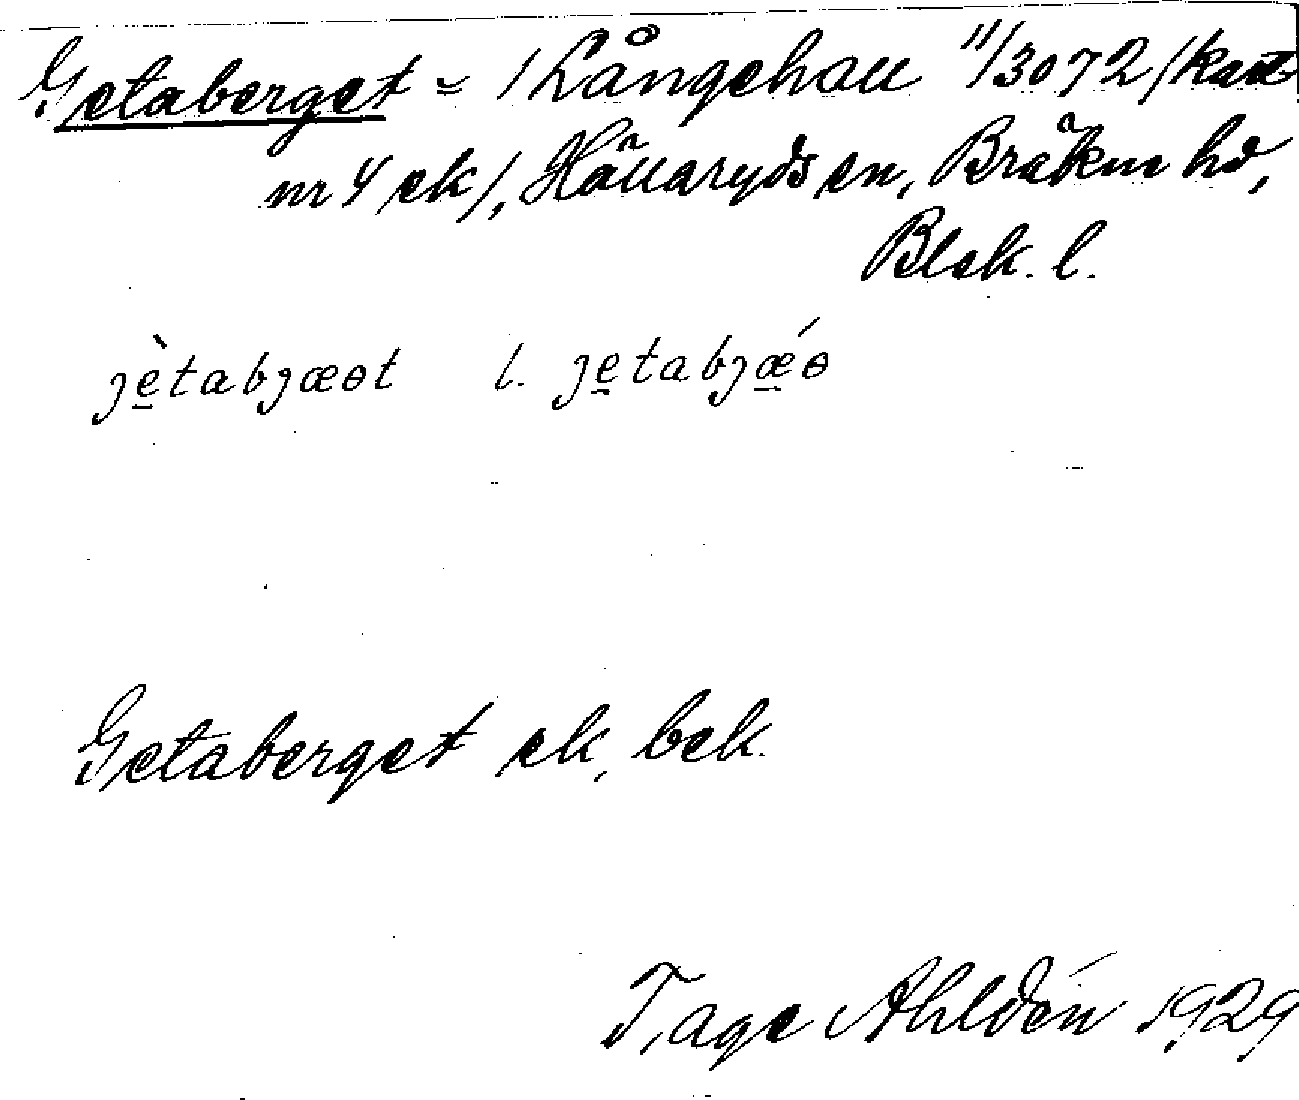 Getaberget = /Långehall 11/3072/kart
nr 4 ek/, Hällaryds sn, Bräkne hd,
Blek. l.
jètabjæɵt l. jetabjǽɵ
Getaberget ek, bek.
Tage Ahldén 1929